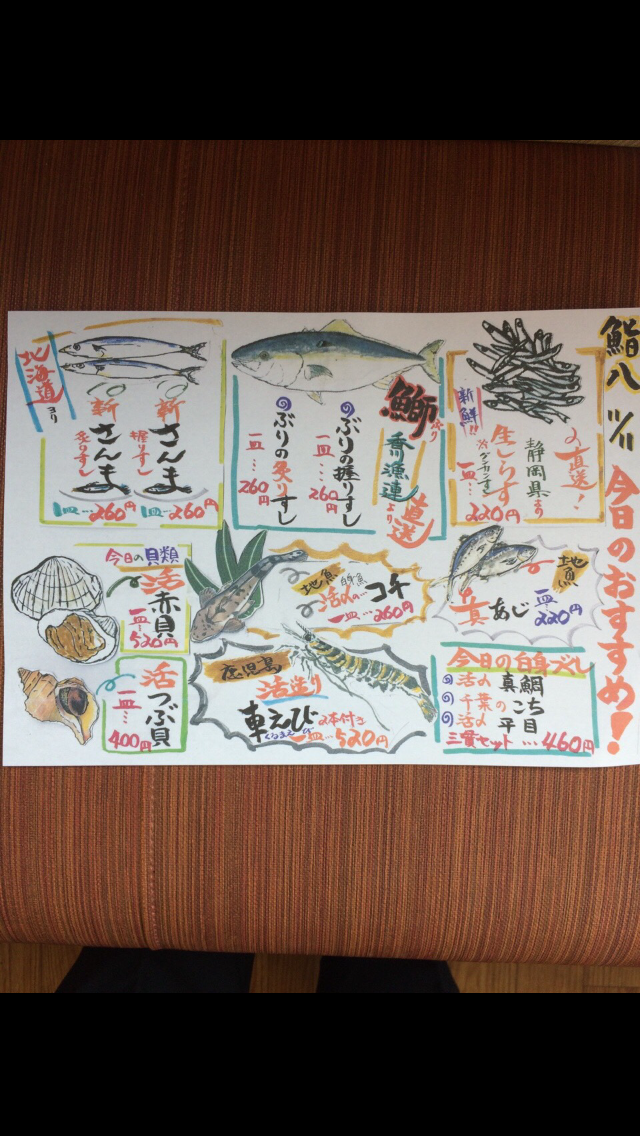 鮨八 11/11
今日のおすすめ!
の直送!
静岡県より
新鮮!!
生しらす
※グンカンすし
一皿…220円
鰤
香川漁連より
直送
ぶりの握りすし
一皿…260円
ぶりの炙りすし
一皿…260円
北海道より
新さんま
握りすし
一皿…260円
新さんま
炙りすし
一皿…260円
地魚
真あじ
一皿…220円
地魚
白身魚
活〆のコチ
一皿…260円
今日の貝類
活赤貝
一皿…520円
活つぶ貝
一皿…400円
鹿児島
活造り
車えび
くるまえび
2本付き
一皿…520円
今日の白身づくし
活〆真鯛
千葉のこち
活〆平目
三貫セット…460円